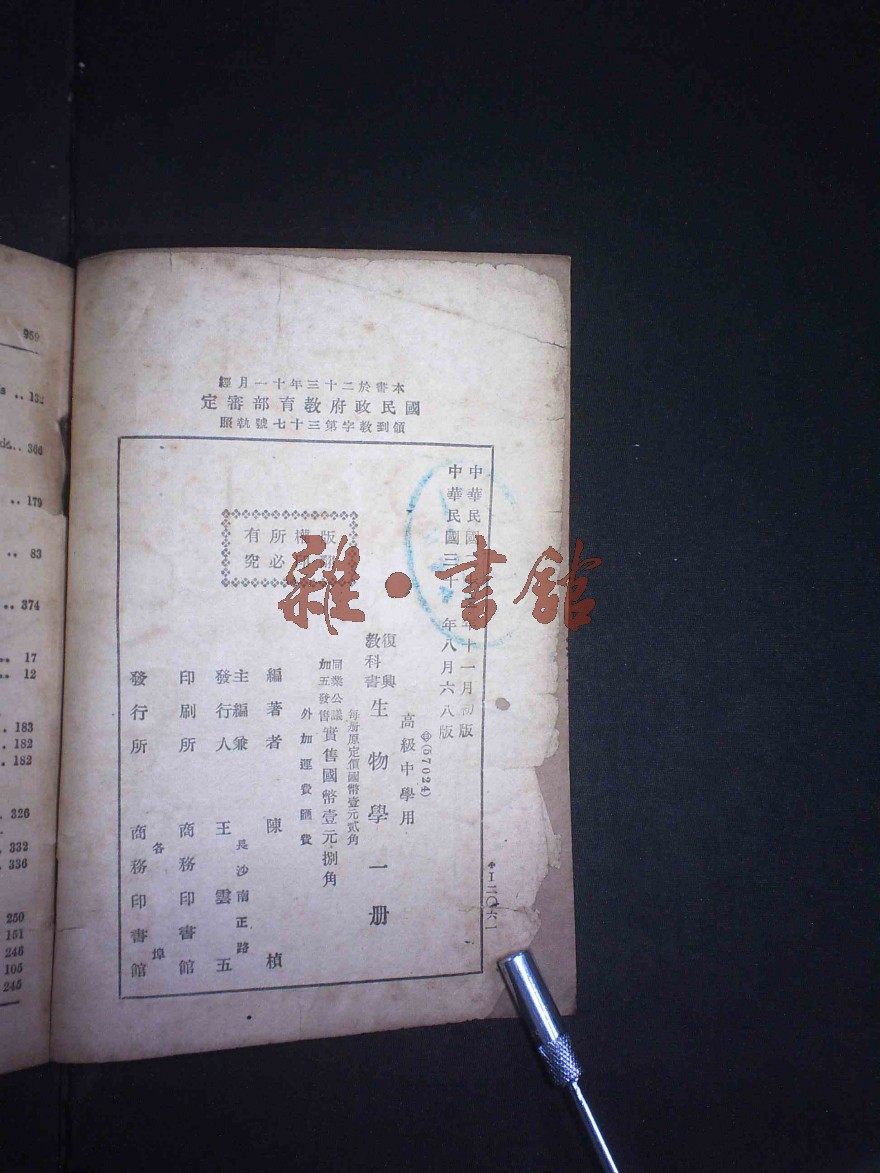 本書於二十三年十一月經
國民政府教育部審定
領到教字第三十七號執照
版權所有
究必
中華民國 年十一月初版
中華民國三十 年八月六八版
(57024)
高級中學用
復興教科書 生物學一册
每册原定價國幣壹元貳角
同業公議加五發售 實售國幣壹元捌角
外加運費匯費
編著者 陳楨
主編兼發行人 王雲五
長沙南正路
印刷所 商務印書館
各埠
發行所 商務印書館
I二〇六一
雜·書館
959
132
366
179
83
374
17
12
183
182
182
326
332
336
250
151
246
105
245